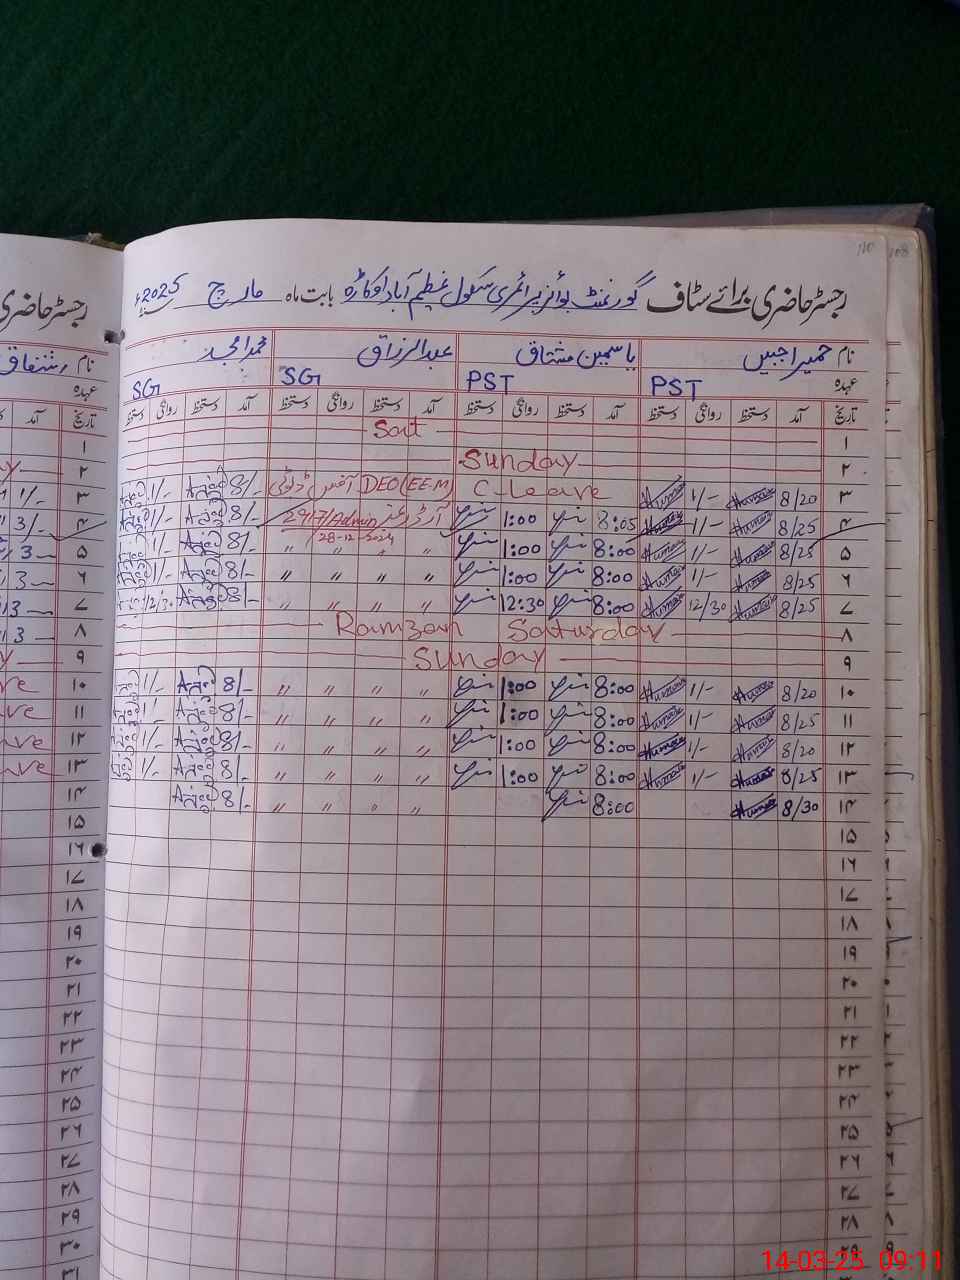 رجسٹر حاضری برائے سٹاف گورنمنٹ بوائز پرائمری سکول عظیم آباد اوکاڑہ بابت ماہ مارچ 2025ء
نام حمیرا جبیں یاسمین مشتاق عبدالرزاق محمد امجد
عہدہ PST PST SG SG
تاریخ آمد دستخط روانگی دستخط آمد دستخط روانگی دستخط آمد دستخط روانگی دستخط آمد دستخط روانگی دستخط
۱ Sat
۲ Sunday
۳ 8/20 Huma 1/- Huma C-Leave DEO(EE-M) آفس ڈیوٹی 8/- Amjad 1/-
۴ 8/25 Huma 1/- Huma 8:05 1:00 آرڈر نمبر 2917/Admin 28-12-2024 8/- Amjad 1/-
۵ 8/25 Huma 1/- Huma 8:00 1:00 〃 〃 〃 〃 8/- Amjad 1/-
۶ 8/25 Huma 1/- Huma 8:00 1:00 〃 〃 〃 〃 8/- Amjad 1/-
۷ 8/25 Huma 12/30 Huma 8:00 12:30 〃 〃 〃 〃 8/- Amjad 12/30
۸ Ramzan Saturday
۹ Sunday
۱۰ 8/20 Huma 1/- Huma 8:00 1:00 〃 〃 〃 〃 8/- Amjad 1/-
۱۱ 8/25 Huma 1/- Huma 8:00 1:00 〃 〃 〃 〃 8/- Amjad 1/-
۱۲ 8/20 Huma 1/- Huma 8:00 1:00 〃 〃 〃 〃 8/- Amjad 1/-
۱۳ 8/25 Huma 1/- Huma 8:00 1:00 〃 〃 〃 〃 8/- Amjad 1/-
۱۴ 8/30 Huma 8:00 〃 〃 〃 〃 8/- Amjad
۱۵
۱۶
۱۷
۱۸
۱۹
۲۰
۲۱
۲۲
۲۳
۲۴
۲۵
۲۶
۲۷
۲۸
۲۹
رجسٹر حاضری
نام
عہدہ
تاریخ آمد
۱
۲
۳ 1/-
۴ 3/-
۵ 3
۶ 3
۷
۸ 3
۹
۱۰
۱۱
۱۲
۱۳
۱۴
۱۵
۱۶
۱۷
۱۸
۱۹
۲۰
۲۱
۲۲
۲۳
۲۴
۲۵
۲۶
۲۷
۲۸
۲۹
۳۰
۳۱
14-03-25 09:11